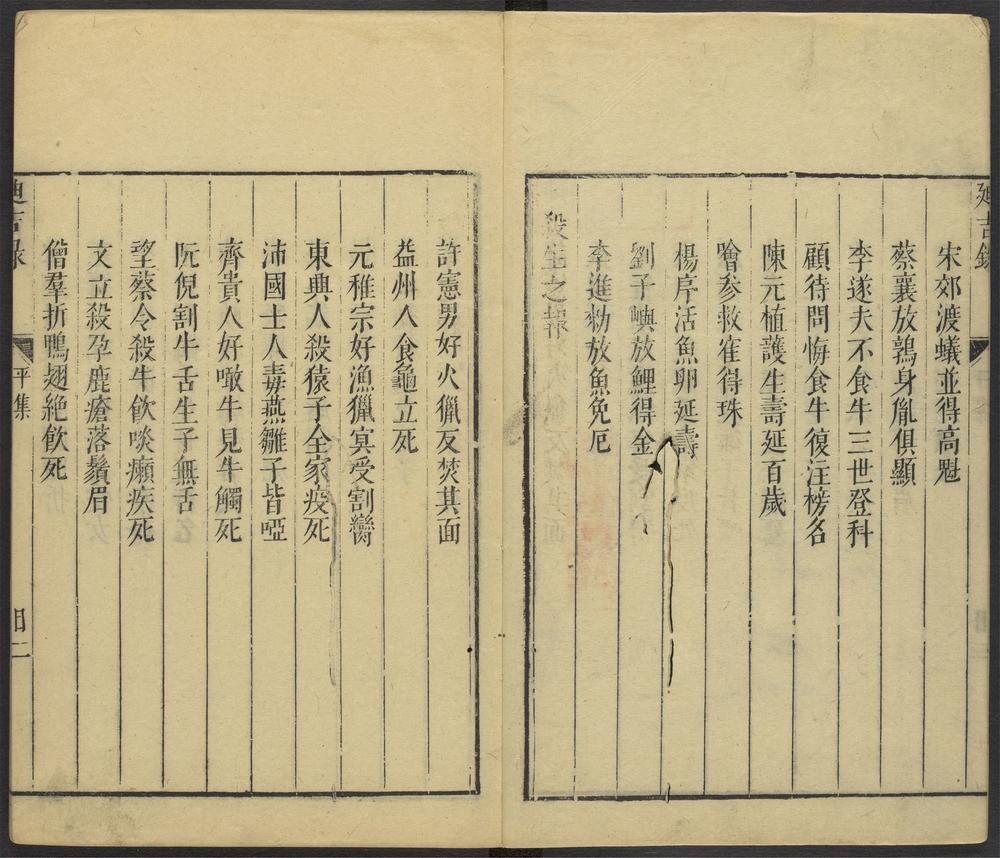 宋郊渡蟻並得高魁
蔡襄放鶉身胤俱顯
李遂夫不食牛三世登科
顧待問悔食牛復注榜名
陳元植護生壽延百歲
噲參救雀得珠
楊序活魚卵延壽
劉子嶼放鯉得金
李進勑放魚免厄
殺生之報
許憲男好火獵反焚其面
益州人食龜立死
元稚宗好漁獵冥受割臠
東興人殺猿子全家疫死
沛國士人毒燕雛子皆啞
齊貴人好噉牛見牛觸死
阮倪割牛舌生子無舌
望蔡令殺牛飲啖癩疾死
文立殺孕鹿瘡落鬚眉
僧羣折鴨翅絶飲死
廸吉録
平集
目二